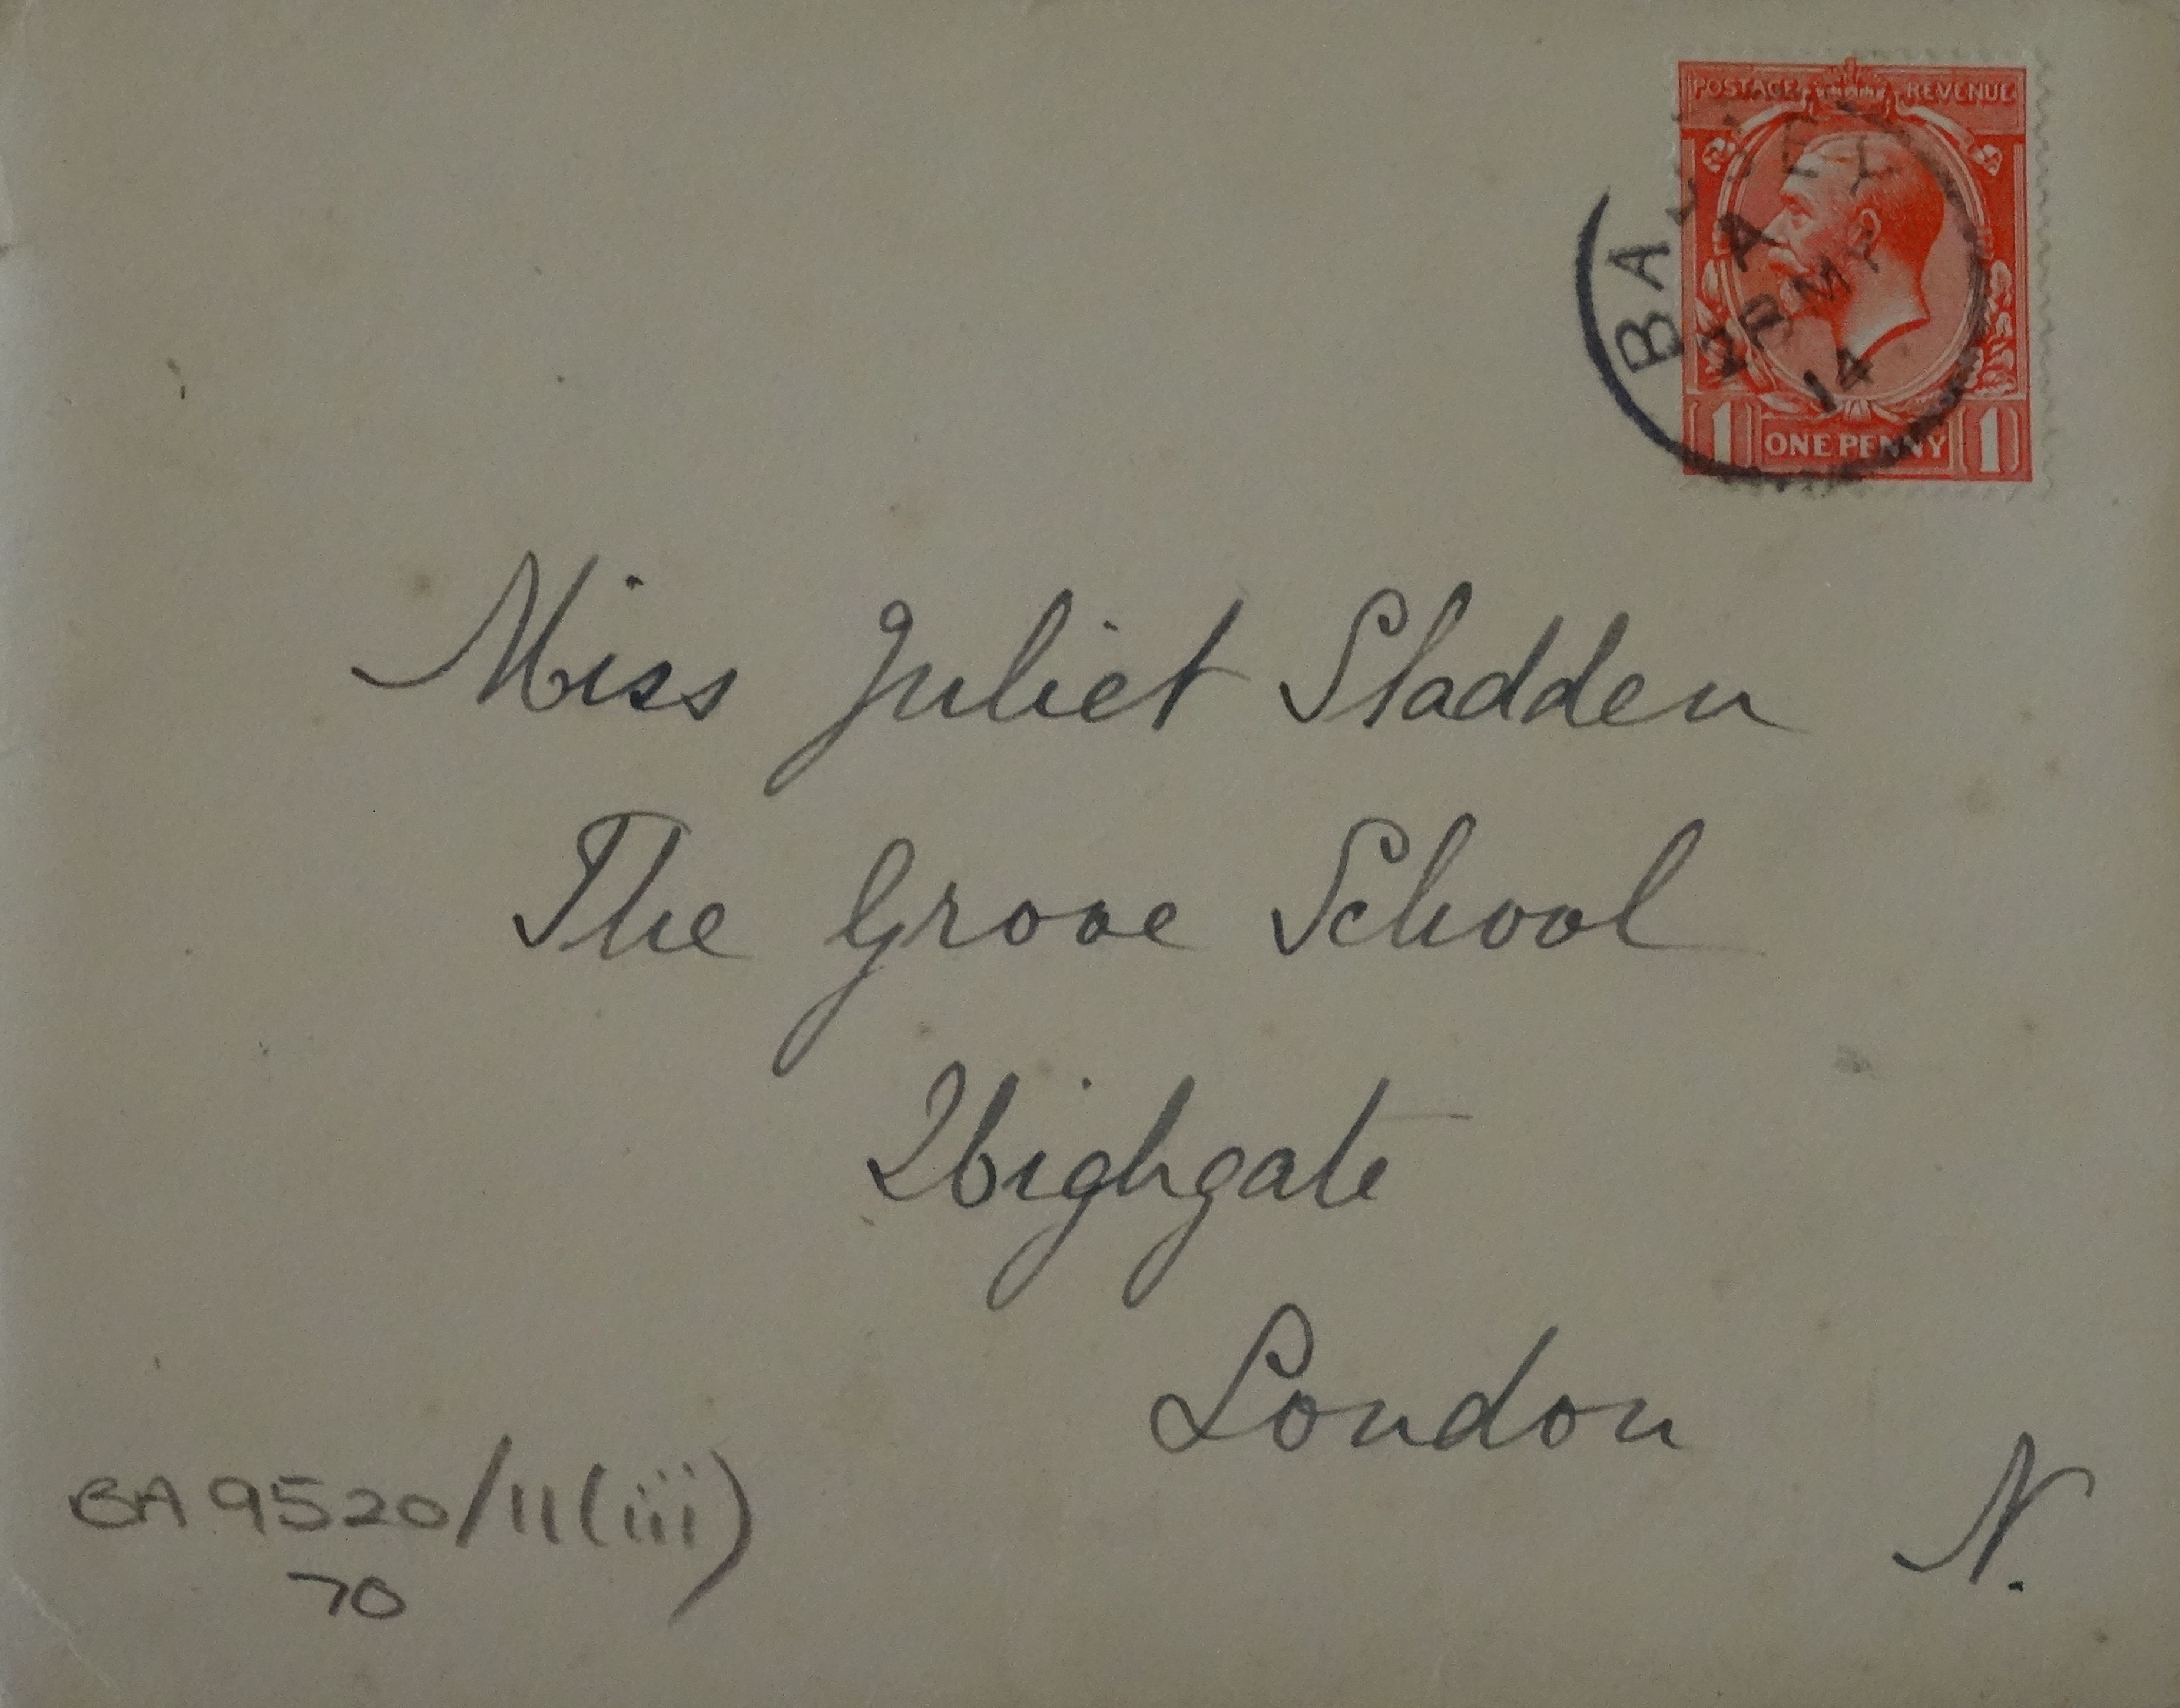 POSTAGE REVENUE
A
MY
14
1 ONE PENNY 1
Miss Juliet Sladden
The Grove School
Highgate
London
N.
BA 9520/11(iii)
70